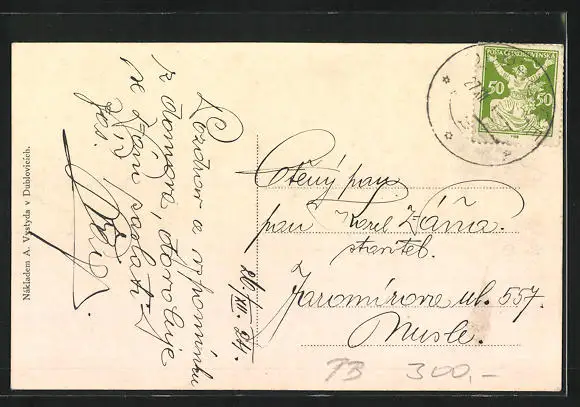 Nákladem A. Vystyda v Dublovicích.
Pozdrav a vzpomínku
z domova, dovoluje
si Vám zaslati
Váš
26/XII. 24.
POŠTA ČESKOSLOVENSKÁ
50 50
Ctěný pan
pan Karel Váňa.
stavitel.
Jaromírova ul. 557.
Nusle.
TB 300,-